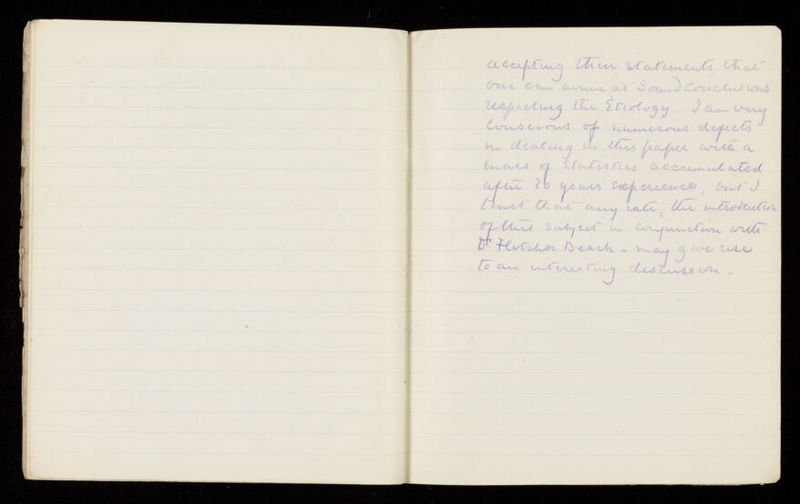 accepting their statements, that
one can arrive at sound conclusions
respecting the Etiology. I am very
conscious of numerous defects
in dealing in this paper with a
mass of statistics accumulated
after 20 years experience, but I
trust that any rate, the introduction
of this subject in conjunction with
Dr Fletcher Beach - may give rise
to an interesting discussion -